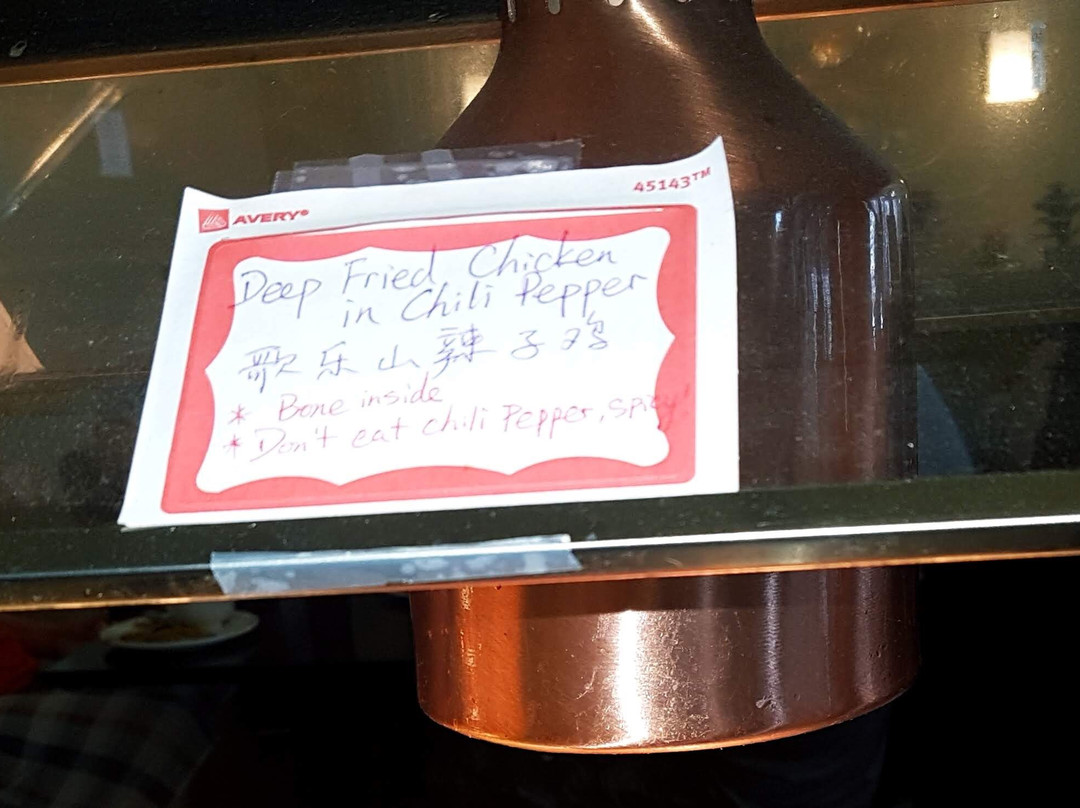 AVERY®
45143™
Deep Fried Chicken
in Chili Pepper
歌乐山辣子鸡
* Bone inside
* Don't eat chili Pepper, spicy